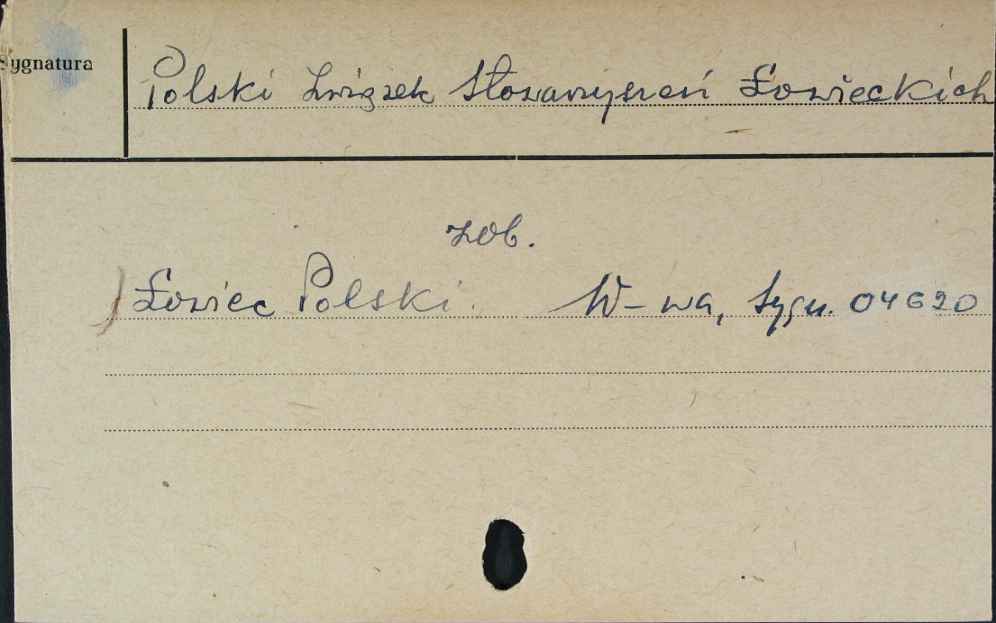 Sygnatura
Polski Związek Stowarzyszeń Łowieckich
zob.
Łowiec Polski. W-wa, Sygn. 04620